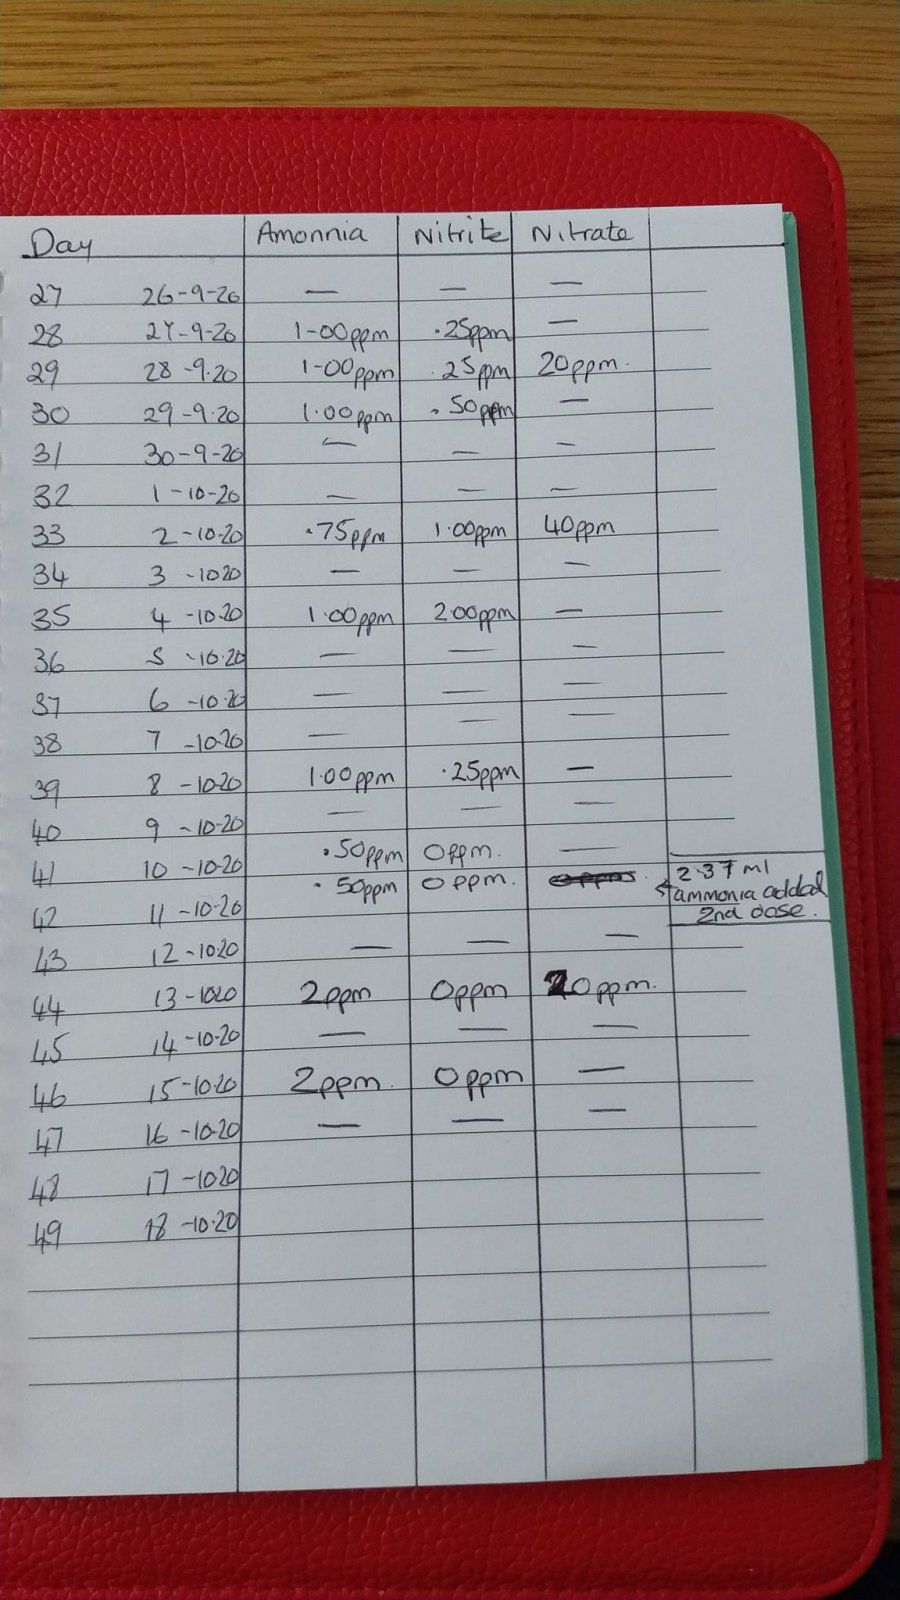 Day Amonnia Nitrite Nitrate
27 26-9-20 — — —
28 27-9-20 1-00ppm .25ppm —
29 28-9.20 1-00ppm .25ppm 20ppm.
30 29-9.20 1.00ppm .50ppm —
31 30-9-20 — — —
32 1-10-20 — — —
33 2-10.20 .75ppm 1.00ppm 40ppm
34 3-1020 — — —
35 4-10.20 1.00ppm 2.00ppm —
36 5-10.20 — — —
37 6-10.20 — — —
38 7-10.20 — — —
39 8-10.20 1.00ppm .25ppm —
40 9-10.20 — — —
41 10-10.20 .50ppm 0ppm. —
42 11-10.20 .50ppm 0ppm. 2.37ml
ammonia added
2nd dose.
43 12-10.20 — — —
44 13-1020 2ppm 0ppm 20ppm.
45 14-10.20 — — —
46 15-10.20 2ppm. 0ppm —
47 16-10.20 — — —
48 17-1020
49 18-10.20